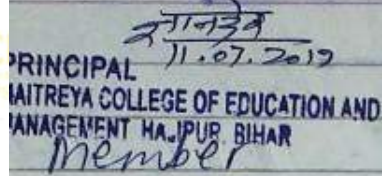 ज्ञानदेव
11.07.2019
PRINCIPAL
MAITREYA COLLEGE OF EDUCATION AND
MANAGEMENT HAJIPUR BIHAR
Member